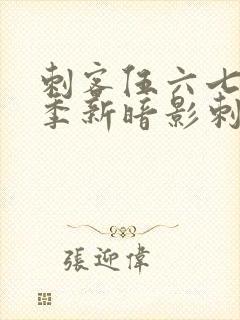 刺客伍六七
季新暗影刺
張迎偉